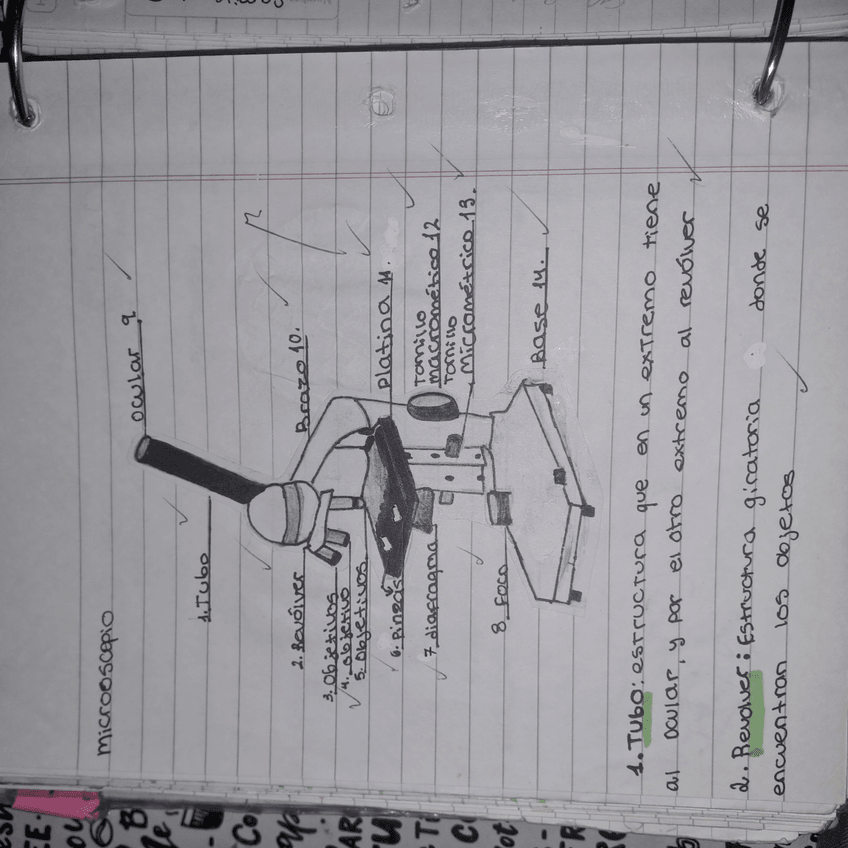 microoscopio
ocular 9.
1. Tubo
Brazo 10.
2. Revólver
3. Objetivos
4. objetivo
5. objetivos
Platina 11.
6. Pinzas
Tornillo
macrométrico 12
7 diafragma
Tornillo
micrométrico 13.
8 foco
Base 14.
1. Tubo: estructura que en un extremo tiene
al ocular, y por el otro extremo al revólver
2. Revolver: Estructura giratoria donde se
encuentran los objetos